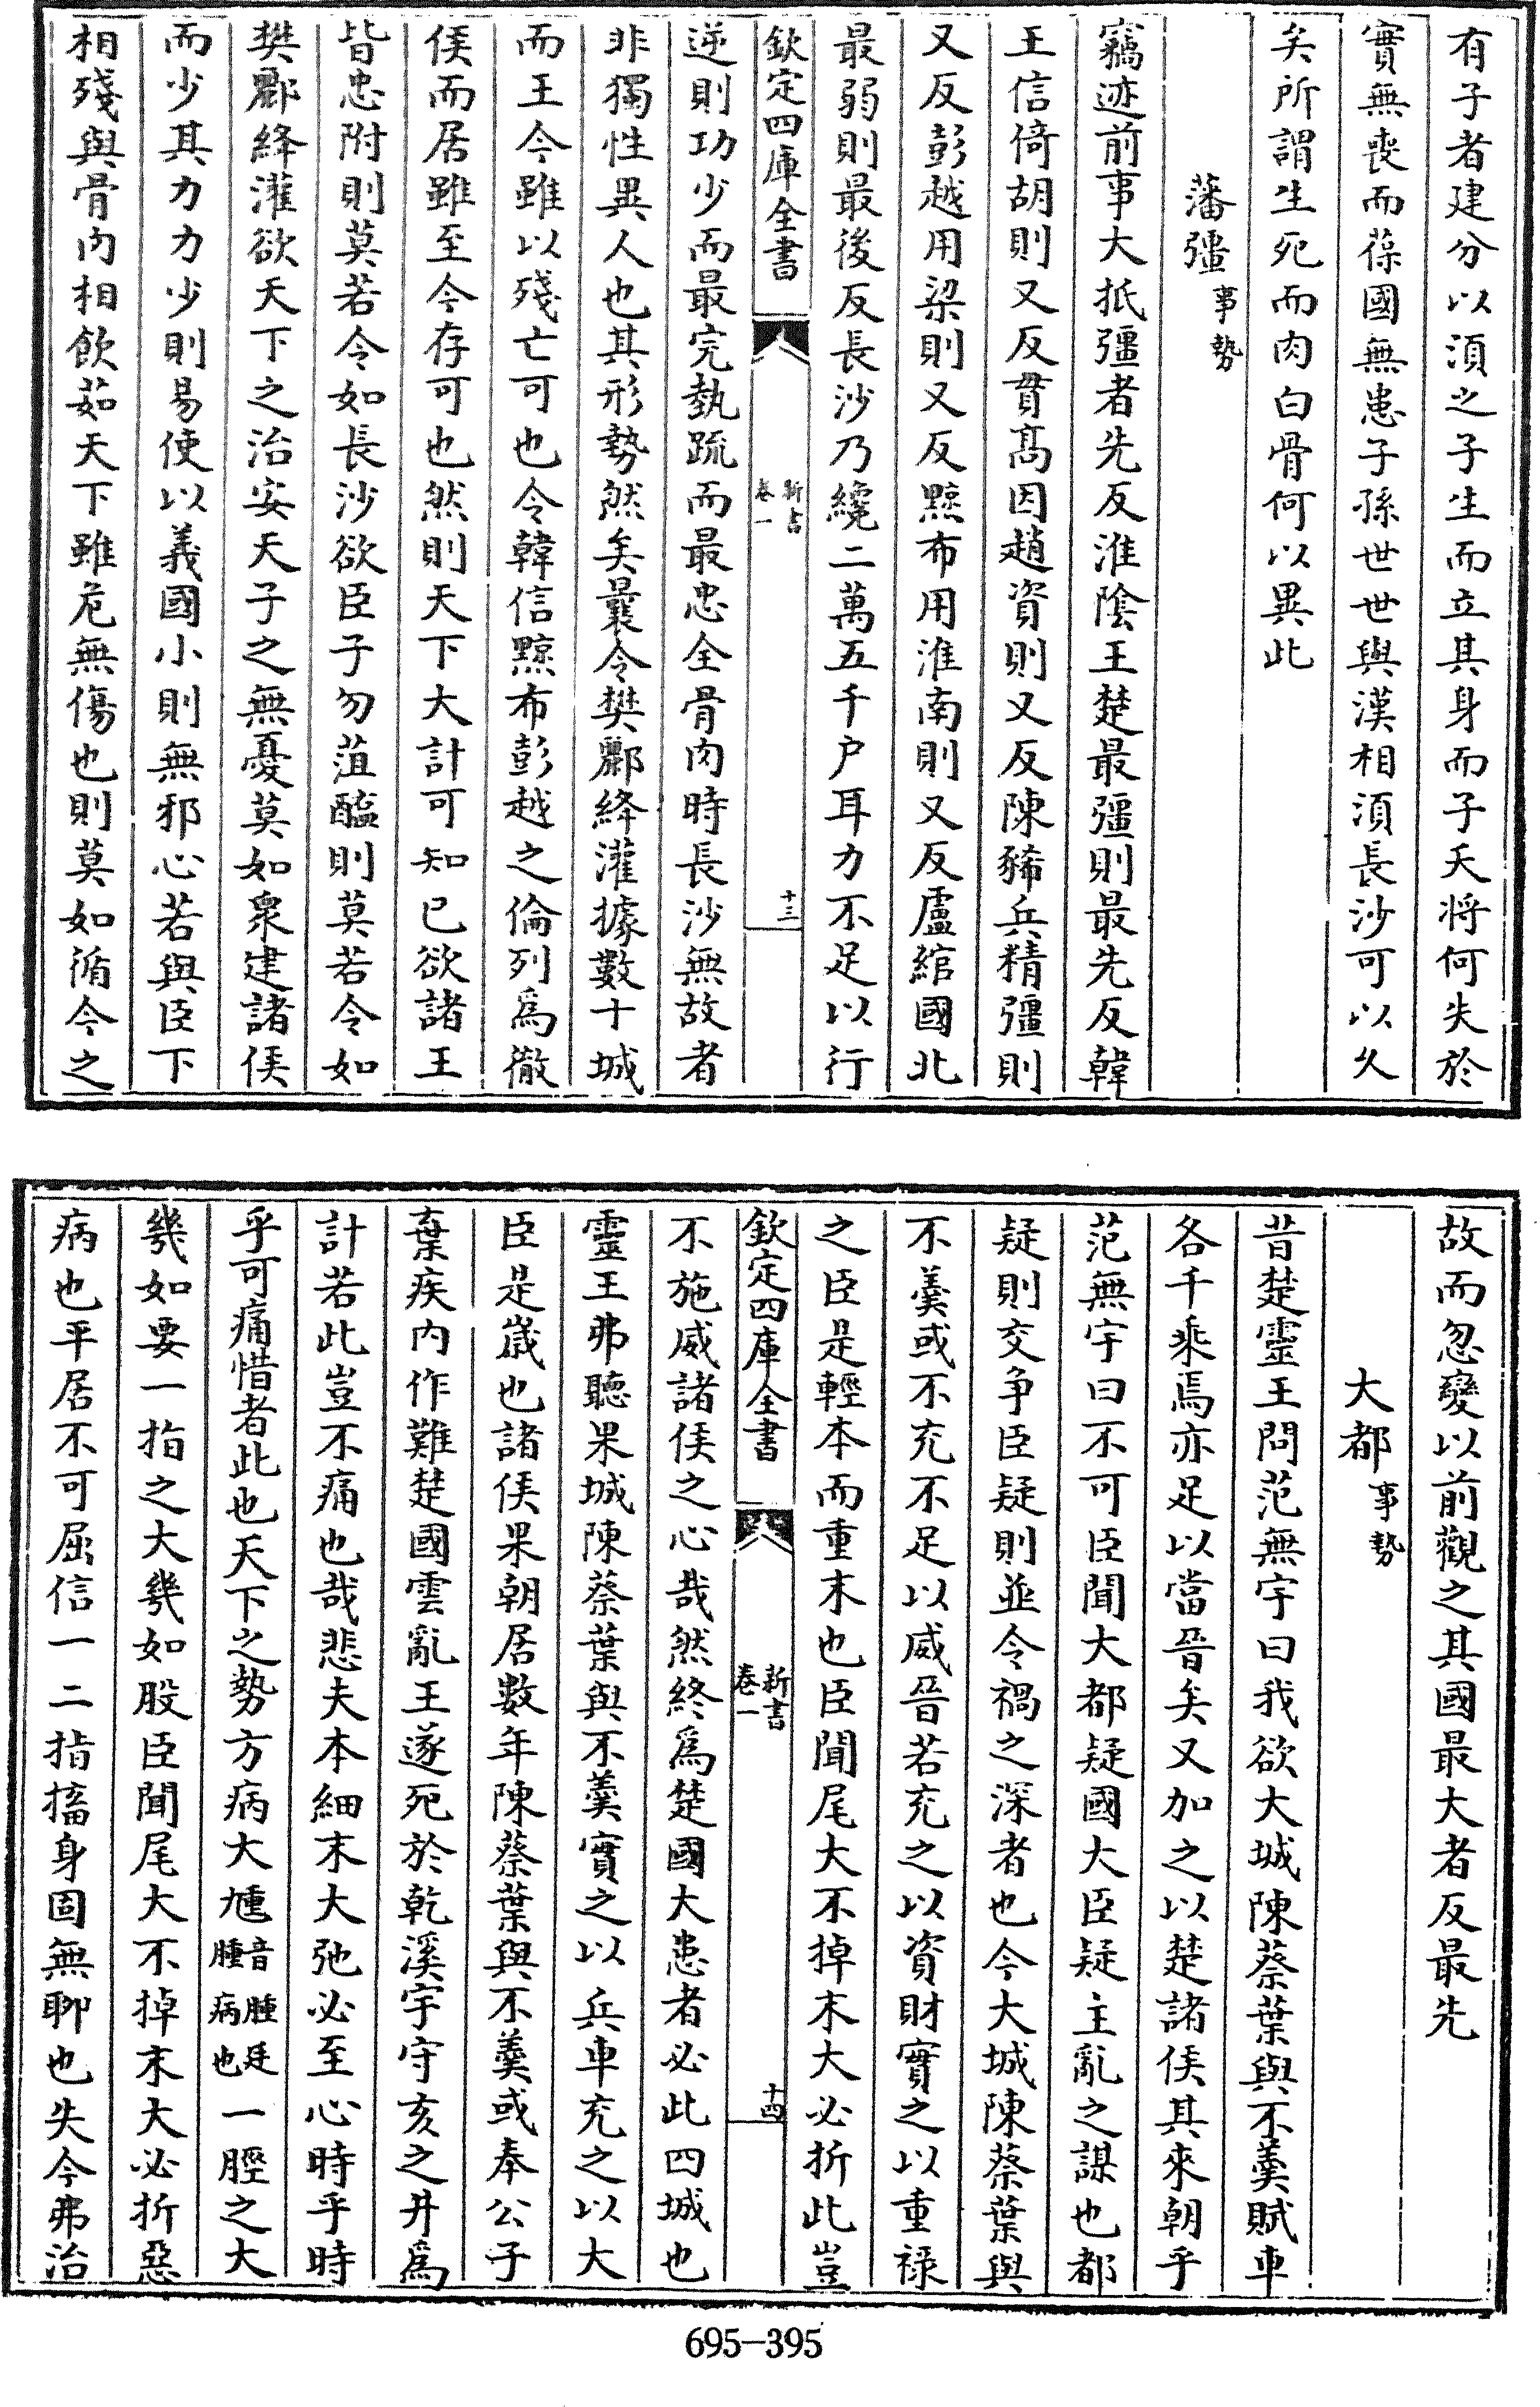 有子者建分以須之子生而立其身而子夭將何失於
實無喪而葆國無患子孫世世與漢相須長沙可以久
矣所謂生死而肉白骨何以異此
藩彊事勢
竊迹前事大抵彊者先反淮隂王楚最彊則最先反韓
王信倚胡則又反貫髙因趙資則又反陳豨兵精彊則
又反彭越用梁則又反黥布用淮南則又反盧綰國北
最弱則最後反長沙乃纔二萬五千户耳力不足以行
欽定四庫全書
新書
卷一
十三
逆則功少而最完埶疏而最忠全骨肉時長沙無故者
非獨性異人也其形勢然矣曩令樊酈絳灌據數十城
而王今雖以殘亡可也令韓信黥布彭越之倫列爲徹
侯而居雖至今存可也然則天下大計可知已欲諸王
皆忠附則莫若令如長沙欲臣子勿菹醢則莫若令如
樊酈絳灌欲天下之治安天子之無憂莫如衆建諸侯
而少其力力少則易使以義國小則無邪心若與臣下
相殘與骨肉相飲茹天下雖危無傷也則莫如循今之
故而忽變以前觀之其國最大者反最先
大都事勢
昔楚靈王問范無宇曰我欲大城陳蔡葉與不羹賦車
各千乘焉亦足以當晉矣又加之以楚諸侯其來朝乎
范無宇曰不可臣聞大都疑國大臣疑主亂之謀也都
疑則交争臣疑則並令禍之深者也今大城陳蔡葉與
不羹或不充不足以威晉若充之以資財實之以重祿
之臣是輕本而重末也臣聞尾大不掉末大必折此豈
欽定四庫全書
新書
卷一
十四
不施威諸侯之心哉然終爲楚國大患者必此四城也
靈王弗聽果城陳蔡葉與不羹實之以兵車充之以大
臣是歲也諸侯果朝居數年陳蔡葉與不羹或奉公子
棄疾内作難楚國雲亂王遂死於乾溪宇守亥之井爲
計若此豈不痛也哉悲夫本細末大弛必至心時乎時
乎可痛惜者此也天下之勢方病大尰音腫腫廷病也一脛之大
幾如要一指之大幾如股臣聞尾大不掉末大必折惡
病也平居不可屈信一二指搐身固無聊也失今弗治
695-395